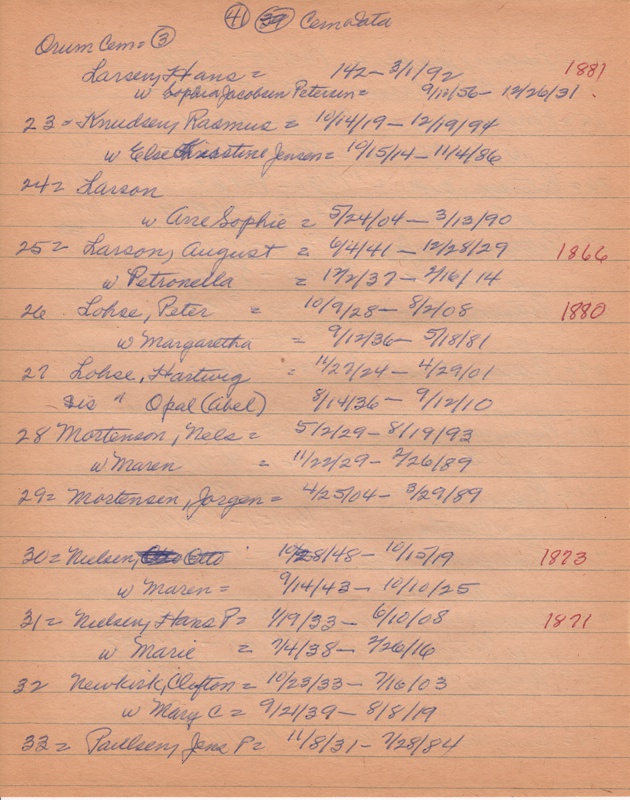 41 39 Cemodata
Orum Cem= 3
Larsen, Hans = 142 - 3/1/92 1881
w Sophia Jacobsen Petersen = 9/12/56 - 12/26/31
23 = Knudsen, Rasmus = 10/14/19 - 12/19/94
w Else Kirstine Jensen = 10/15/14 - 11/4/86
24 = Larson
w Ane Sophie = 5/24/04 - 3/13/90
25 = Larson, August = 6/4/41 - 12/28/29 1866
w Petronella = 12/2/37 - 2/16/14
26 Lohse, Peter = 10/9/28 - 8/2/08 1880
w Margaretha = 9/12/36 - 5/18/81
27 Lohse, Hartwig = 11/27/24 - 4/29/01
sis " Opal (Abel) 8/14/36 - 9/12/10
28 Mortenson, Nels = 5/2/29 - 8/19/93
w Maren = 11/22/29 - 2/26/89
29 = Mortensen, Jorgen = 4/25/04 - 3/29/89
30 = Nielsen, Otto 10/28/48 - 10/15/19 1873
w Maren = 9/14/43 - 10/10/25
31 = Nielsen, Hans P = 1/19/33 - 6/10/08 1871
w Marie = 7/4/38 - 2/26/16
32 Newkirk, Clofton = 10/23/33 - 7/16/03
w Mary C = 9/21/39 - 8/8/19
33 = Paulsen, Jens P = 11/8/31 - 7/28/84